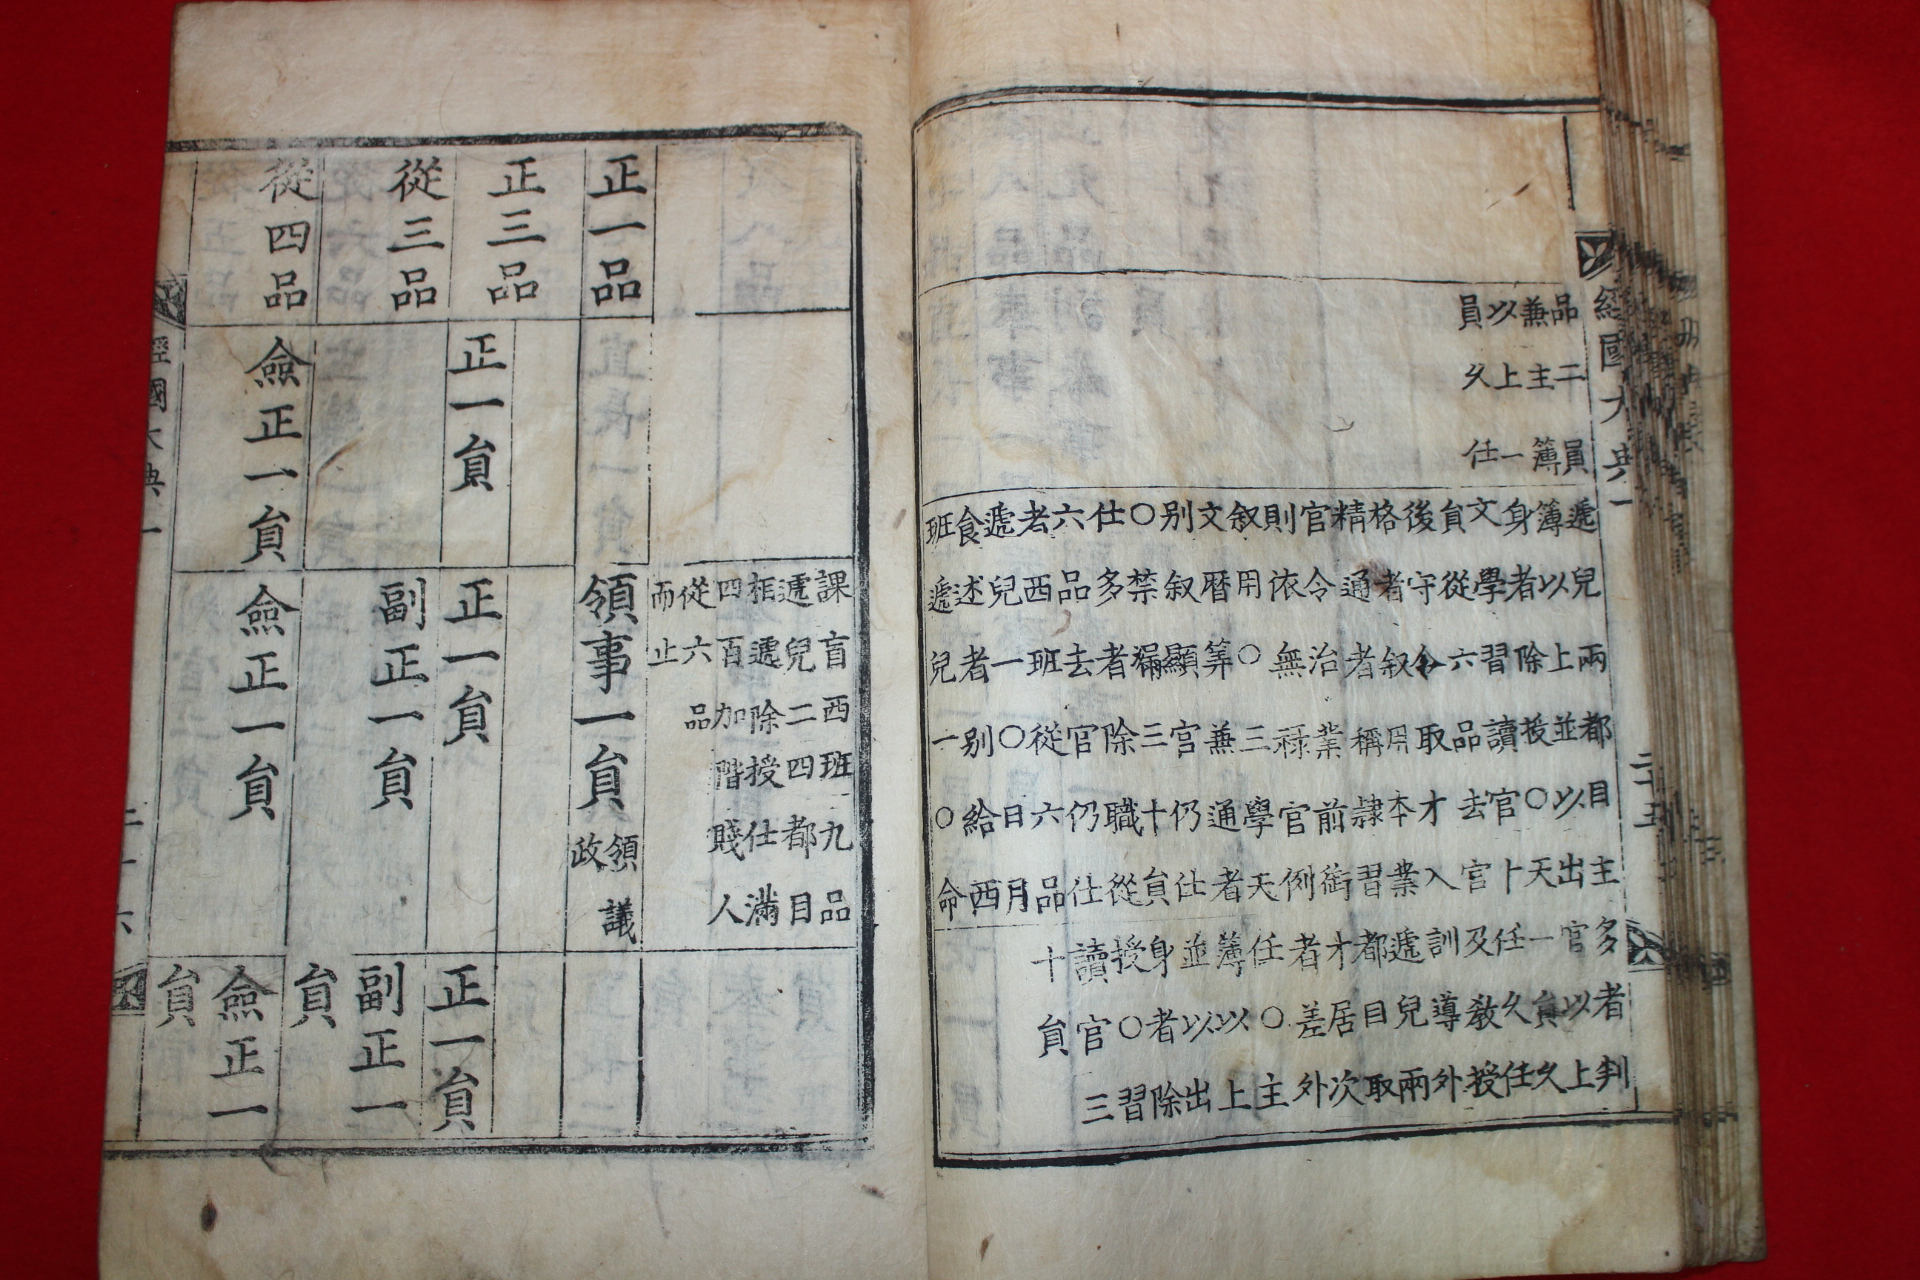 經國大典一
二十五
品二員
兼主簿
以上一
員久任
遞兒兩都目主
簿以上並以出
身者除授○天
文學習讀官卜
負從六品去官
後守令取才入
格者叙用本業
精通者稱隷習
官令治業前衙
則依無祿官例
叙用○三學天
文曆筭兼通者
别叙顯官仍仕
○禁漏三十負
仕多者除職從
六品去官仍仕
去西班從六品
遞兒一○日月
食述者别給西
班遞兒一○命
多者判
官以上
一負久
任久任
及教授
訓導外
遞兒兩
都目取
才居次
者差外
任○主
簿以上
並以出
身者除
授○習
讀官三
十負
課盲西班九品
遞兒二四都目
相遞除授仕滿
四百加階賤人
從六品
而止
正一品
領事一負
領議
政
正三品
正一負
正一負
正一負
從三品
副正一負
副正一
負
從四品
僉正一負
僉正一負
僉正一
負
經國大典一
二十六